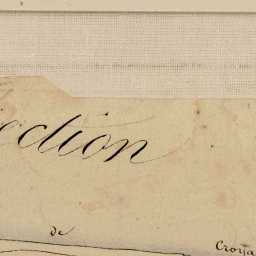 ection
de
Croya